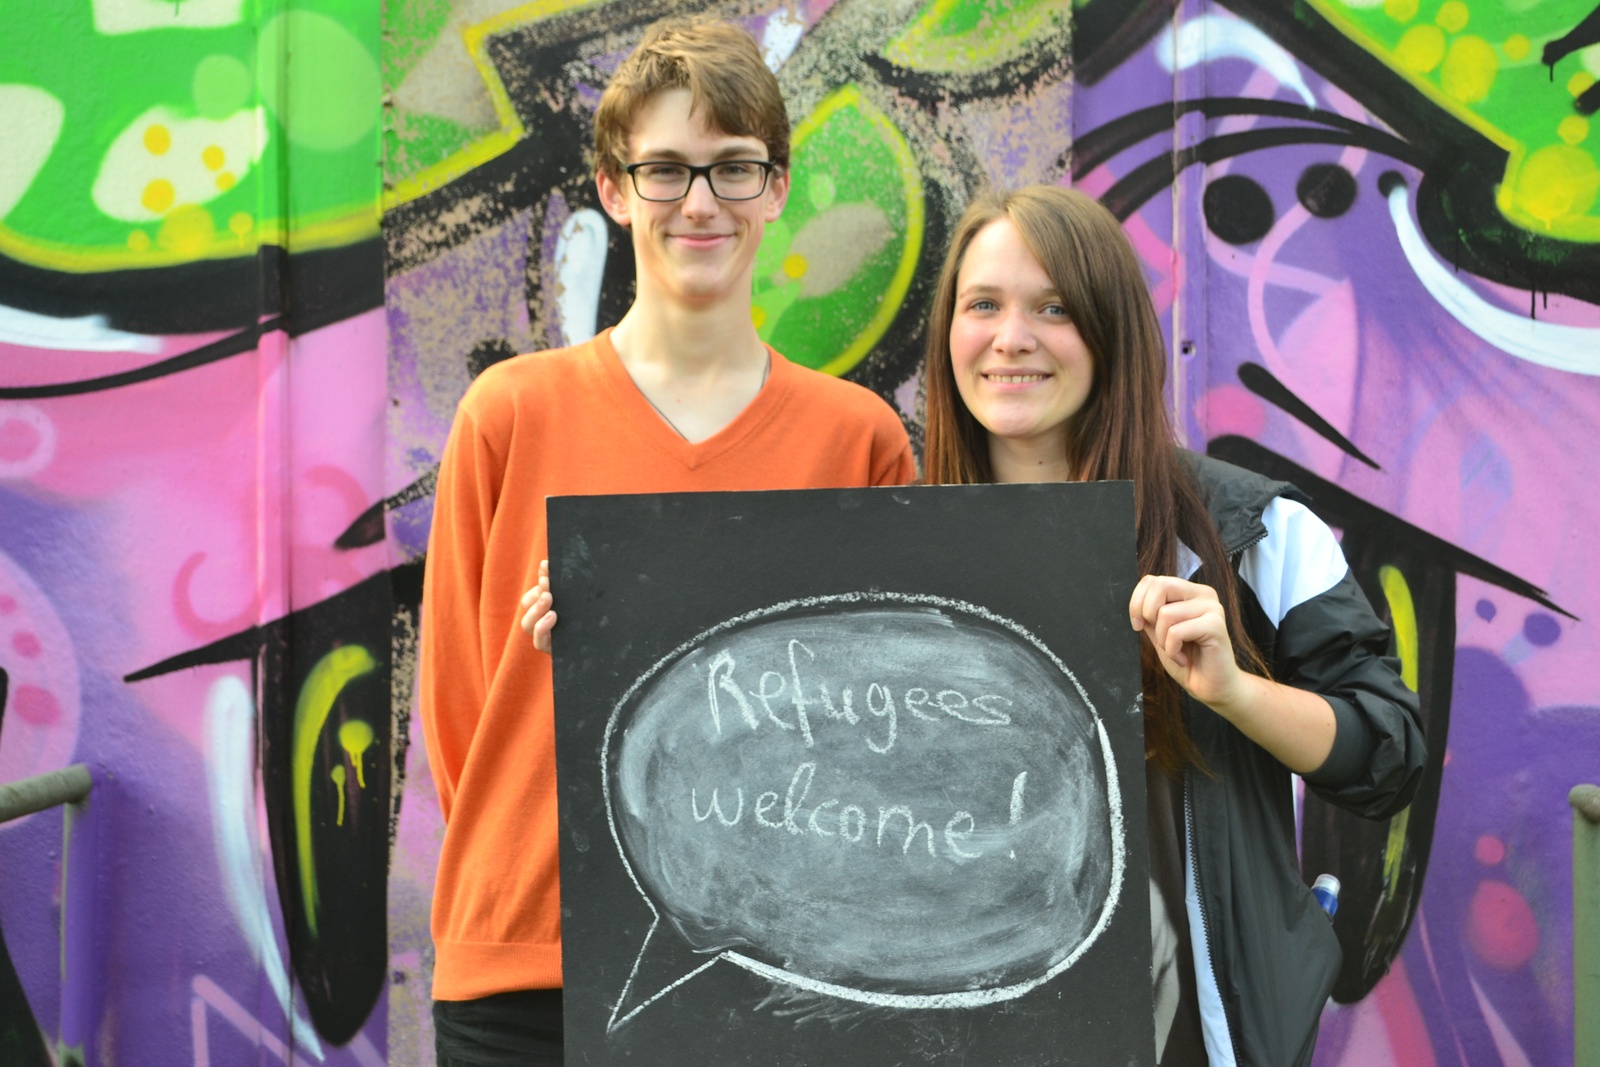 Refugees
welcome!